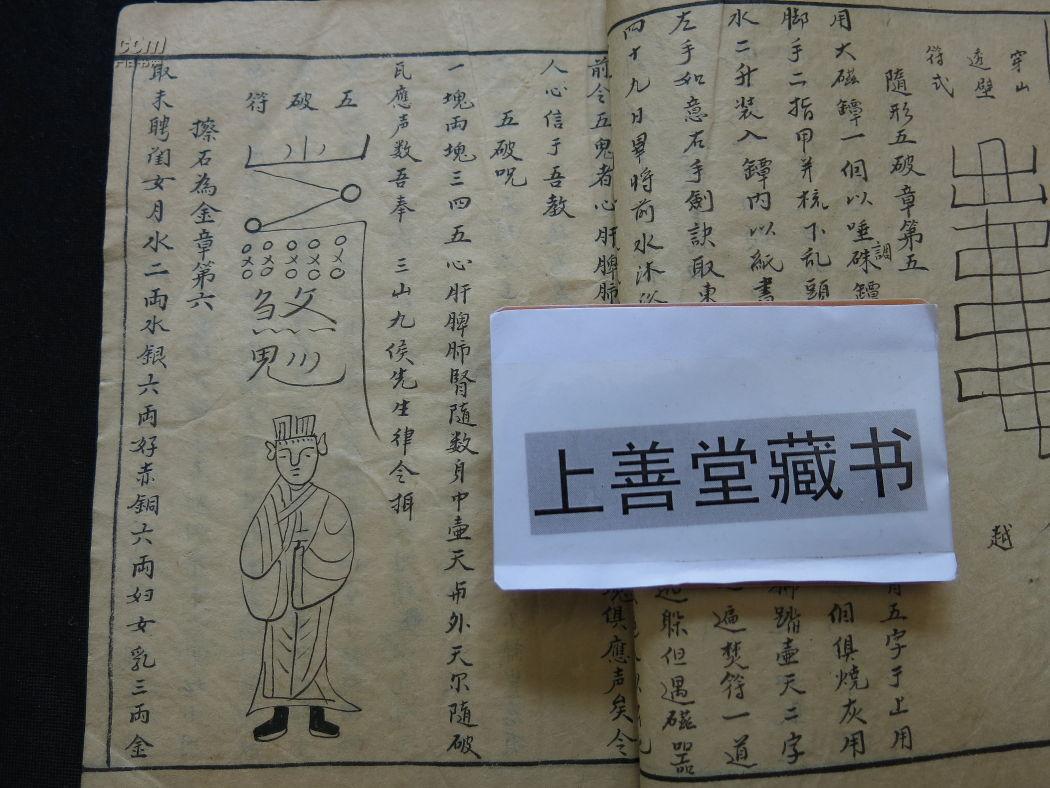 穿山
透壁
符式
越
隨形五破章第五
五字于上用
用大磁罈一個以唾硃調罈
個俱燒灰用
脚手二指甲并梳下乱頭
踏壷天二字
水二升裝入罈內以紙書
遍焚符一道
左手如意右手劍訣取東
躲但遇磁器
四十九日畢將前水沐浴
前令五鬼者心肝脾肺
俱應声矣令
人心信于吾教
五破咒
一塊両塊三四五心肝脾肺腎隨数身中壷天
外天尔隨破
瓦應声数吾奉 三山九侯先生律令
五破符
擦石為金章第六
取未聘閨女月水二両水銀六両好赤銅六両妇女乳三両金
上善堂藏书